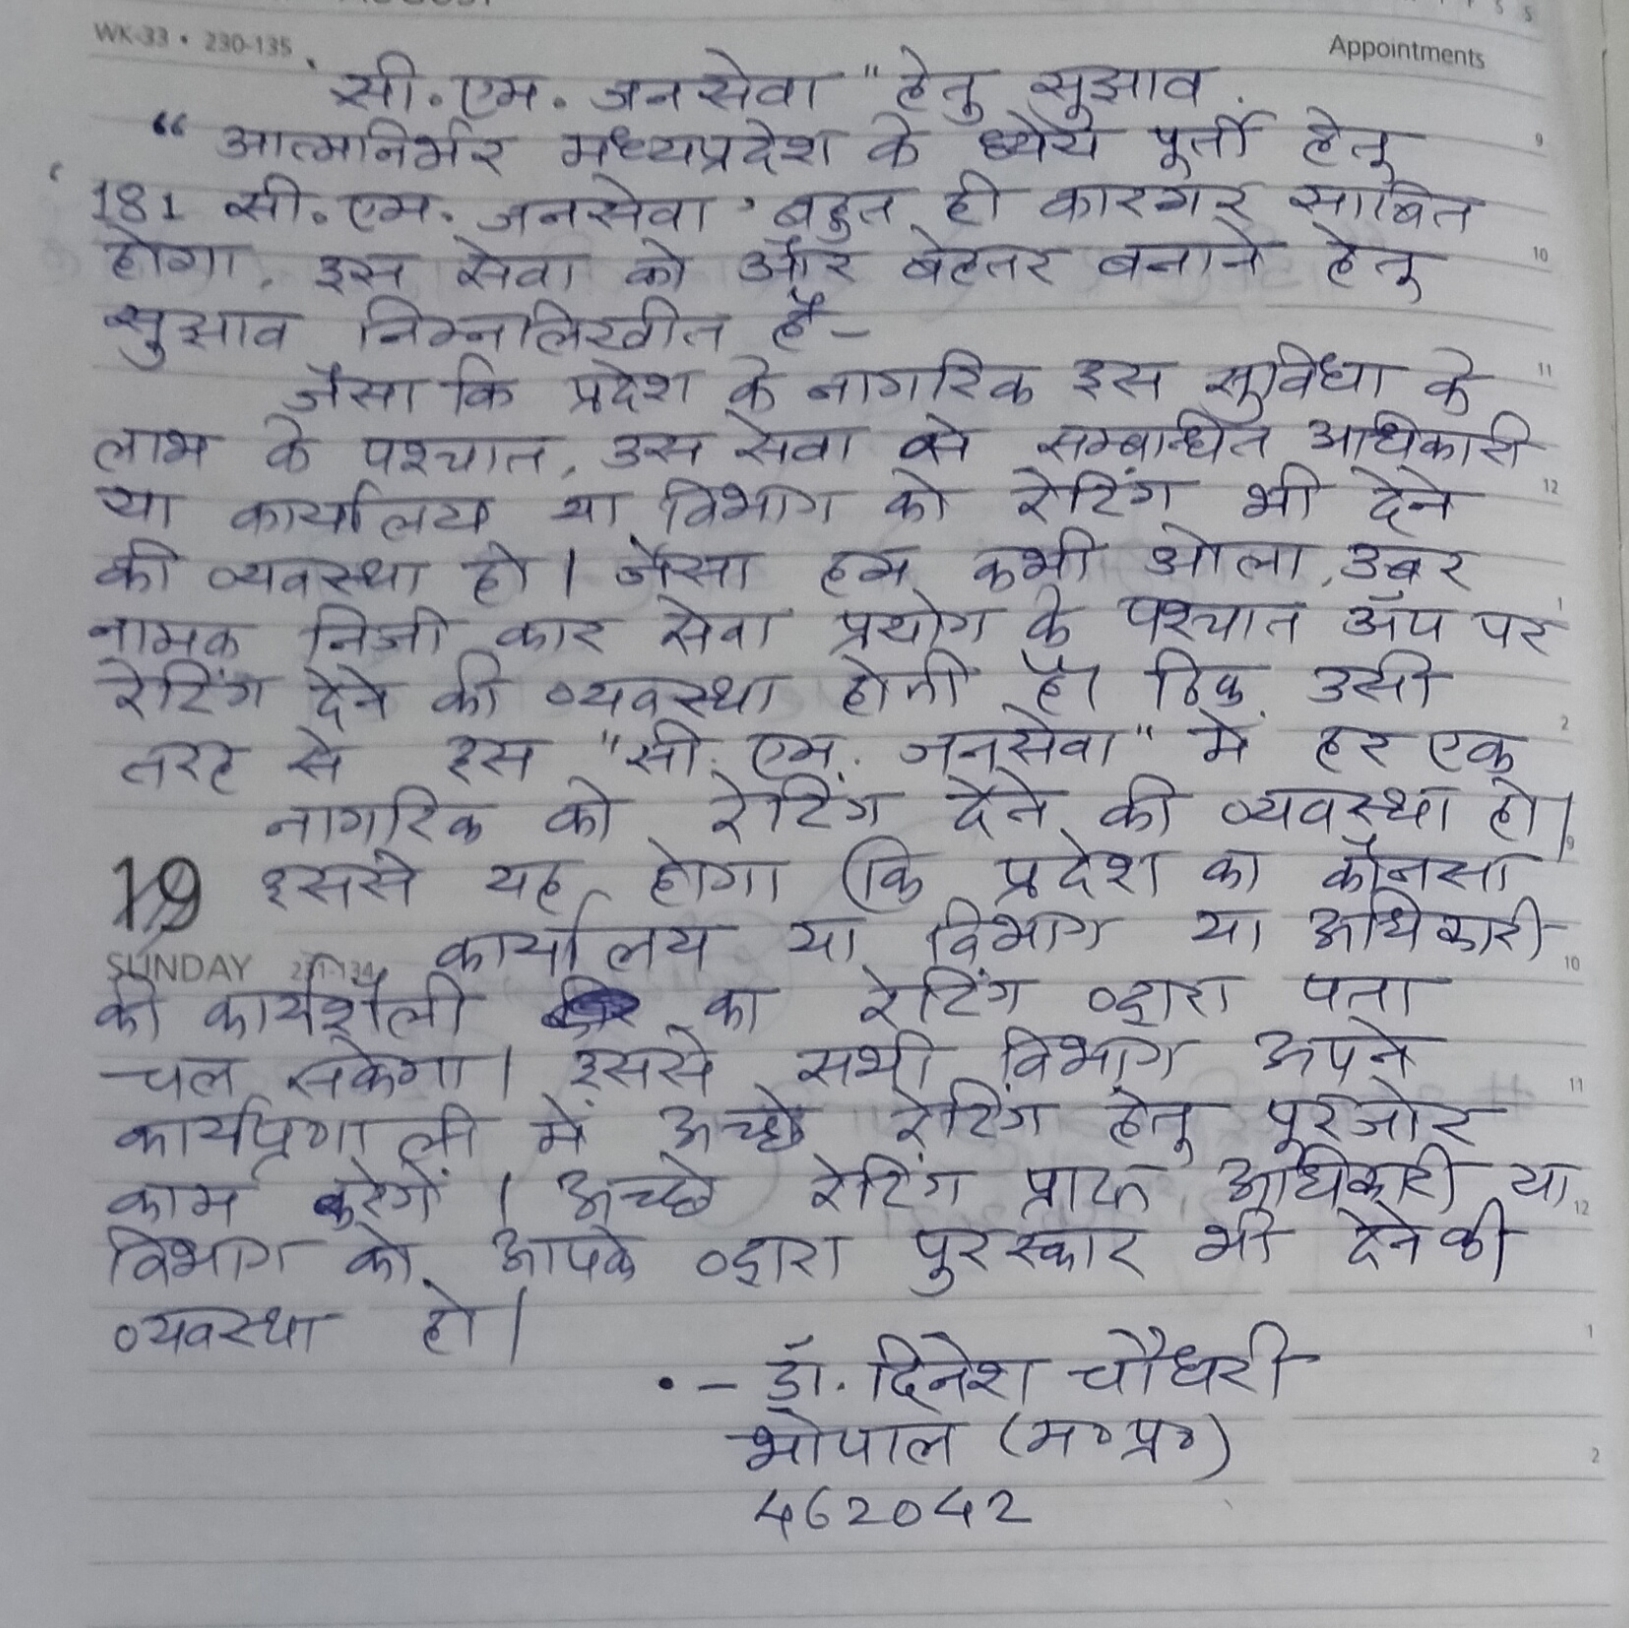 WK-33 • 230-135
Appointments
'सी.एम. जनसेवा" हेतु सुझाव.
"आत्मनिर्भर मध्यप्रदेश के ध्येय पुर्ती हेतु
'181 सी.एम. जनसेवा' बहुत ही कारगर साबित
होगा, इस सेवा को और बेहतर बनाने हेतु
सुझाव निम्नलिखीत है-
जैसा कि प्रदेश के नागरिक इस सुविधा के
लाभ के पश्चात, उस सेवा से सम्बान्धित अधिकारी
या कार्यालय या विभाग को रेटिंग भी देने
की व्यवस्था हो। जैसा हम कभी ओला, उबर
नामक निजी कार सेवा प्रयोग के पश्चात अ‍ॅप पर
रेटिंग देने की व्यवस्था होती है। ठिक उसी
तरह से इस "सी. एम. जनसेवा" मे हर एक
नागरिक को रेटिंग देने की व्यवस्था हो।
19 इससे यह होगा कि प्रदेश का कौनसा
कार्यालय या विभाग या अधिकारी
SUNDAY
की कार्यशैली का रेटिंग व्दारा पता
चल सकेगा। इससे सभी विभाग अपने
कार्यप्रणाली में अच्छे रेटिंग हेतु पूरजोर
काम करेगें। अच्छे रेटिंग प्राप्त अधिकारी या
विभाग को आपके व्दारा पुरस्कार भी देने की
व्यवस्था हो।
•- डॉ. दिनेश चौधरी
भोपाल (म०प्र०)
462042